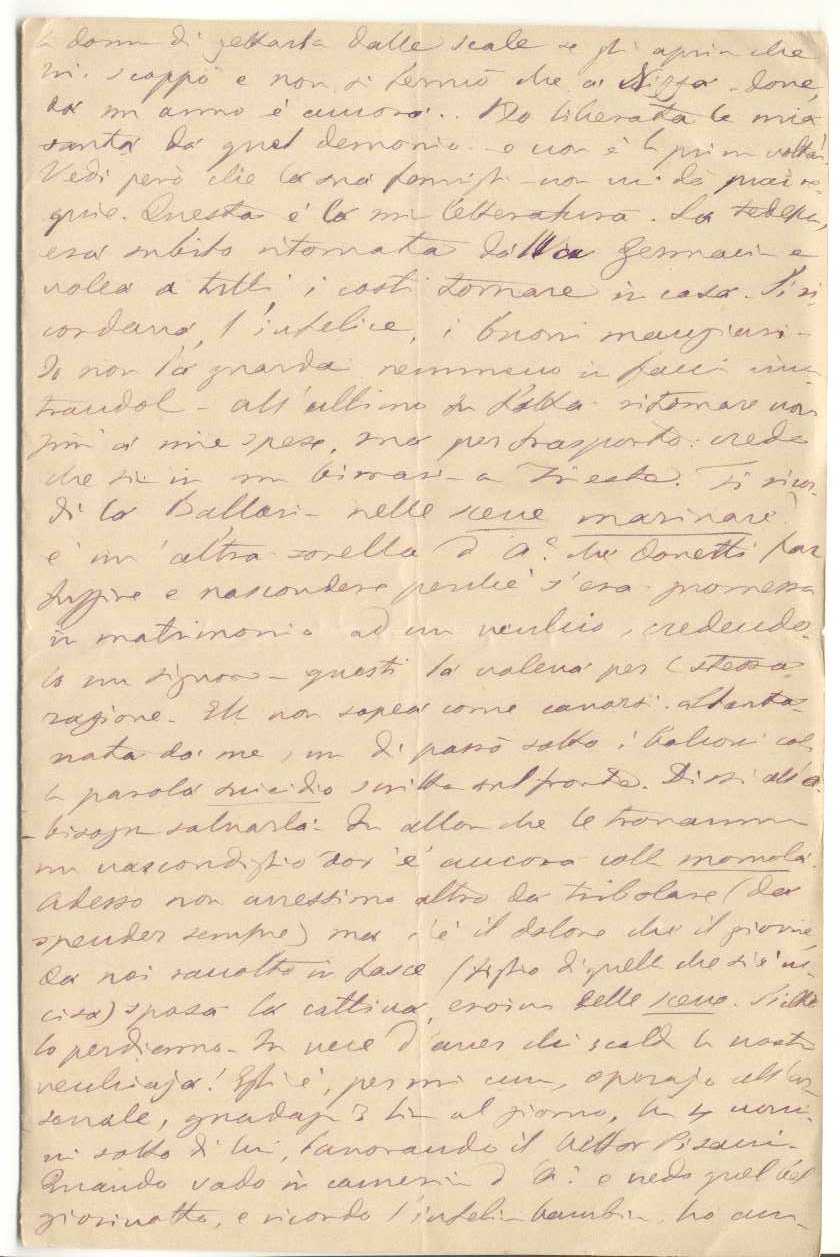 la donna di gettarla dalle scale se gli apria che
lui scappò e non si fermò che a Nizza - dove,
da un anno è ancora.. Ho liberata la mia
santa da quel demonio - e non è la prima volta!
Vedi però che la sua famigli- non mi dà mai re-
quie. Questa è la mia letteratura. La tedesca,
era subito ritornata dalla Germania e
volea a tutti i costi tornare in casa. Si ri-
cordava, l'infelice, i buoni mangiari -
Io non l'ho guarda nemmeno in faccia
all'ultimo fu fatta ritornare non
più a mie spese, ma per trasporto: credo
che sia in un a Trieste. Ti ricor-
di la Ballari- nelle scene marinare?
è un'altra sorella d'A.ª che dovetti far
fuggire e nascondere perchè s'era promessa
in matrimonio ad un vecchio, credendo-
lo un signore - questi la voleva per la stessa
ragione. Ella non sapea come cavarsi. Allonta-
nata da me, un dì passò sotto i balconi col-
la parola suicidio scritta sul fronte. Dissi all'A.
bisogna salvarla. Fu allora che le trovammo
un nascondiglio dov'è ancora colla momola.
Adesso non avressimo altro da tribolare (da
spender sempre) ma c'è il dolore che il giovine,
da noi raccolto in fasce (figlio di quella che si è uc-
cisa) sposa la cattiva eroina delle scene. Sicchè
lo perdiamo - In vece d'aver chi scalda la nostra
vecchiaja! Egli è, per mi cura, operajo all'ar-
senale, guadagna 3 lire al giorno, ha 4 uomi-
ni sotto di lui, lavorando il Vettor Pisani -
Quando vado in camerin d'A.ª e vedo quel bel
giovinotto, e ricordo l'infelice bambin, ho an-